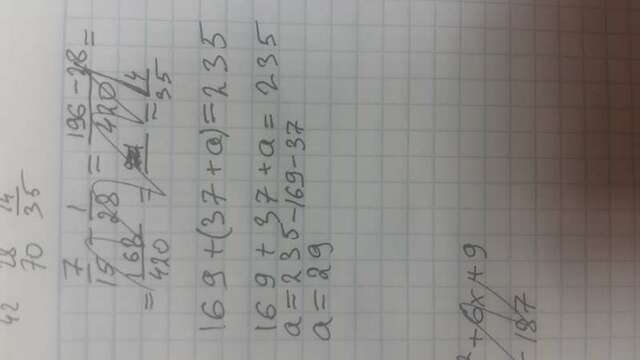 42 28/70 14/35
7/15 - 1/28 = 196-28/420 =
= 168/420 = = 14/35
169+(37+a)=235
169+37+a=235
a=235-169-37
a=29
²+6x+9
-187